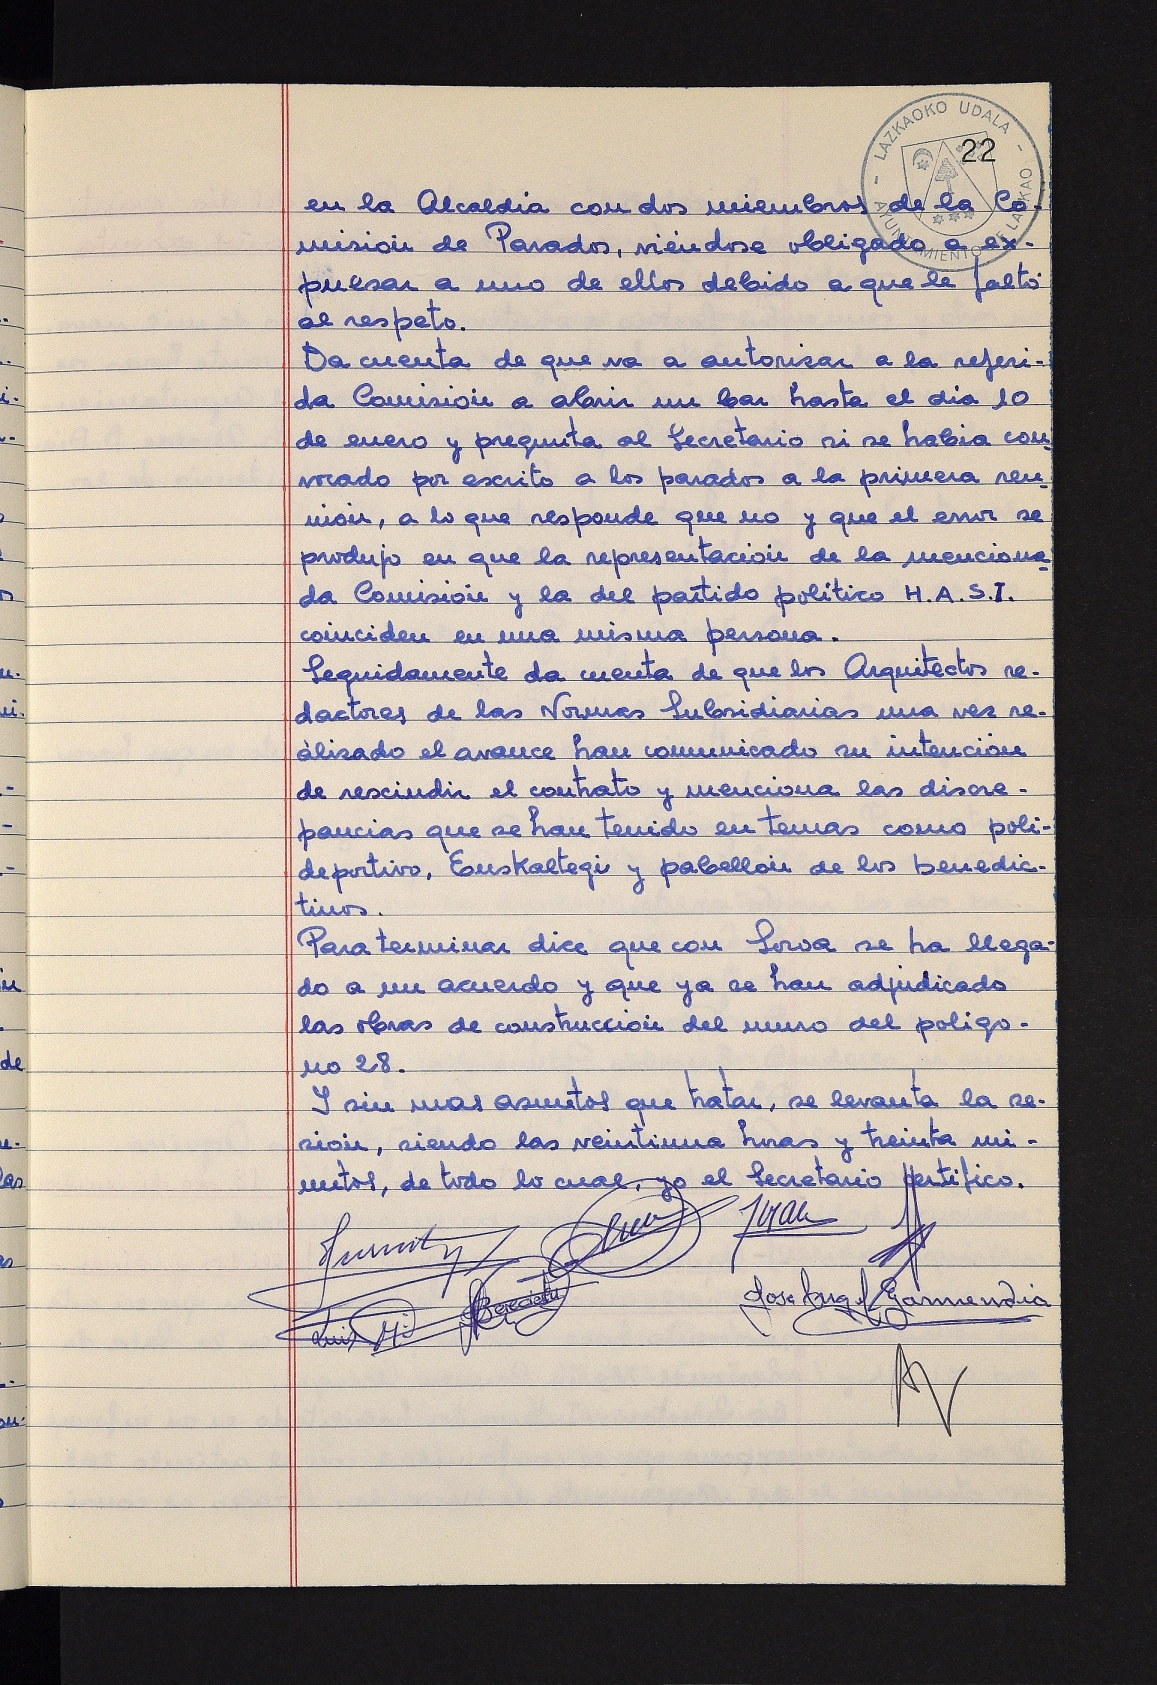 - LAZKAOKO UDALA -
AYUNTAMIENTO DE LAZKAO
22
en la Alcaldia con dos miembros de la Co-
misión de Parados, viéndose obligado a ex-
pulsar a uno de ellos debido a que le faltó
al respeto.
Da cuenta de que va a autorizar a la referi-
da Comisión a abrir un bar hasta el dia 10
de enero y pregunta al Secretario si se habia con
vocado por escrito a los parados a la primera reu
nión, a lo que responde que no y que el error se
produjo en que la representación de la menciona
da Comisión y la del partido político H.A.S.I.
coinciden en una misma persona.
Seguidamente da cuenta de que los Arquitectos re-
dactores de las Normas Subsidiarias una vez re-
alizado el avance han comunicado su intención
de rescindir el contrato y menciona las discre-
pancias que se han tenido en temas como poli-
deportivo, Euskaltegi y pabellón de los benedic-
tinos.
Para terminar dice que con Sorva se ha llega-
do a un acuerdo y que ya se han adjudicado
las obras de construcción del muro del poligo-
no 28.
Y sin mas asuntos que tratar, se levanta la se-
sión, siendo las veintiuna horas y treinta mi-
nutos, de todo lo cual, yo el Secretario certifico.
Jose Angel Garmendia
Luis Mi